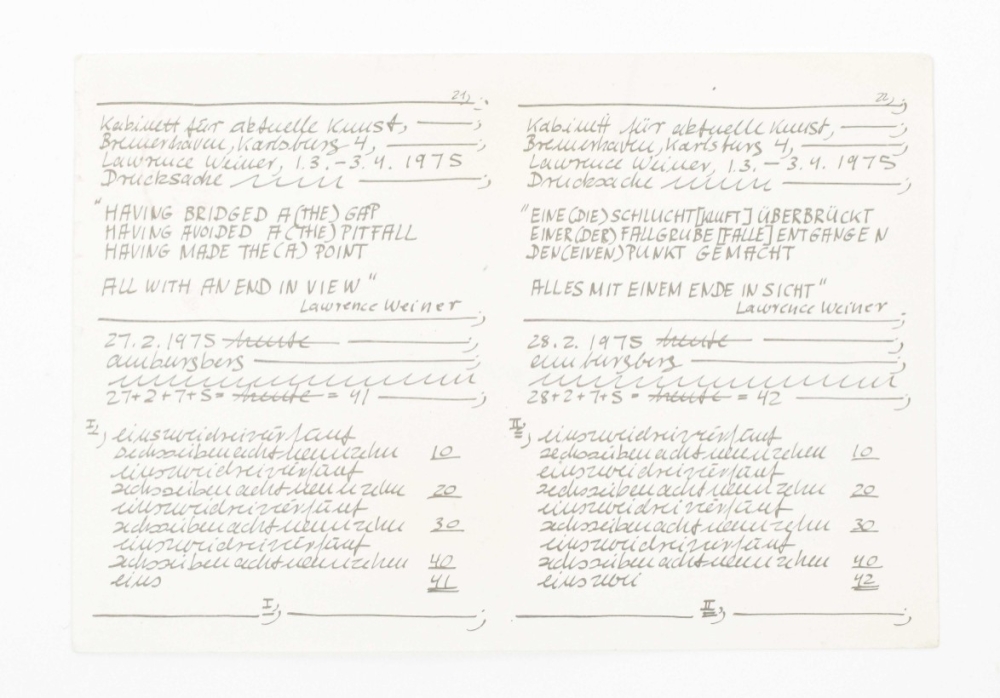 21,
Kabinett für aktuelle Kunst,
Bremerhaven, Karlsburg 4,
Lawrence Weiner, 1.3. – 3.4. 1975
Drucksache
"HAVING BRIDGED A (THE) GAP
HAVING AVOIDED A (THE) PITFALL
HAVING MADE THE (A) POINT
ALL WITH AN END IN VIEW"
Lawrence Weiner
27.2.1975 heute
amburgberg
27+2+7+5= heute = 41
I, einszweidreivierfünf
sechssiebenachtneunzehn 10
einszweidreivierfünf
sechssiebenachtneunzehn 20
einszweidreivierfünf
sechssiebenachtneunzehn 30
einszweidreivierfünf
sechssiebenachtneunzehn 40
eins 41
I,
22,
Kabinett für aktuelle Kunst,
Bremerhaven, Karlsburg 4,
Lawrence Weiner, 1.3. – 3.4. 1975
Drucksache
"EINE (DIE) SCHLUCHT [KLUFT] ÜBERBRÜCKT
EINER (DER) FALLGRUBE [FALLE] ENTGANGEN
DEN (EINEN) PUNKT GEMACHT
ALLES MIT EINEM ENDE IN SICHT"
Lawrence Weiner
28.2.1975 heute
amburgberg
28+2+7+5= heute = 42
II, einszweidreivierfünf
sechssiebenachtneunzehn 10
einszweidreivierfünf
sechssiebenachtneunzehn 20
einszweidreivierfünf
sechssiebenachtneunzehn 30
einszweidreivierfünf
sechssiebenachtneunzehn 40
einszwei 42
II,